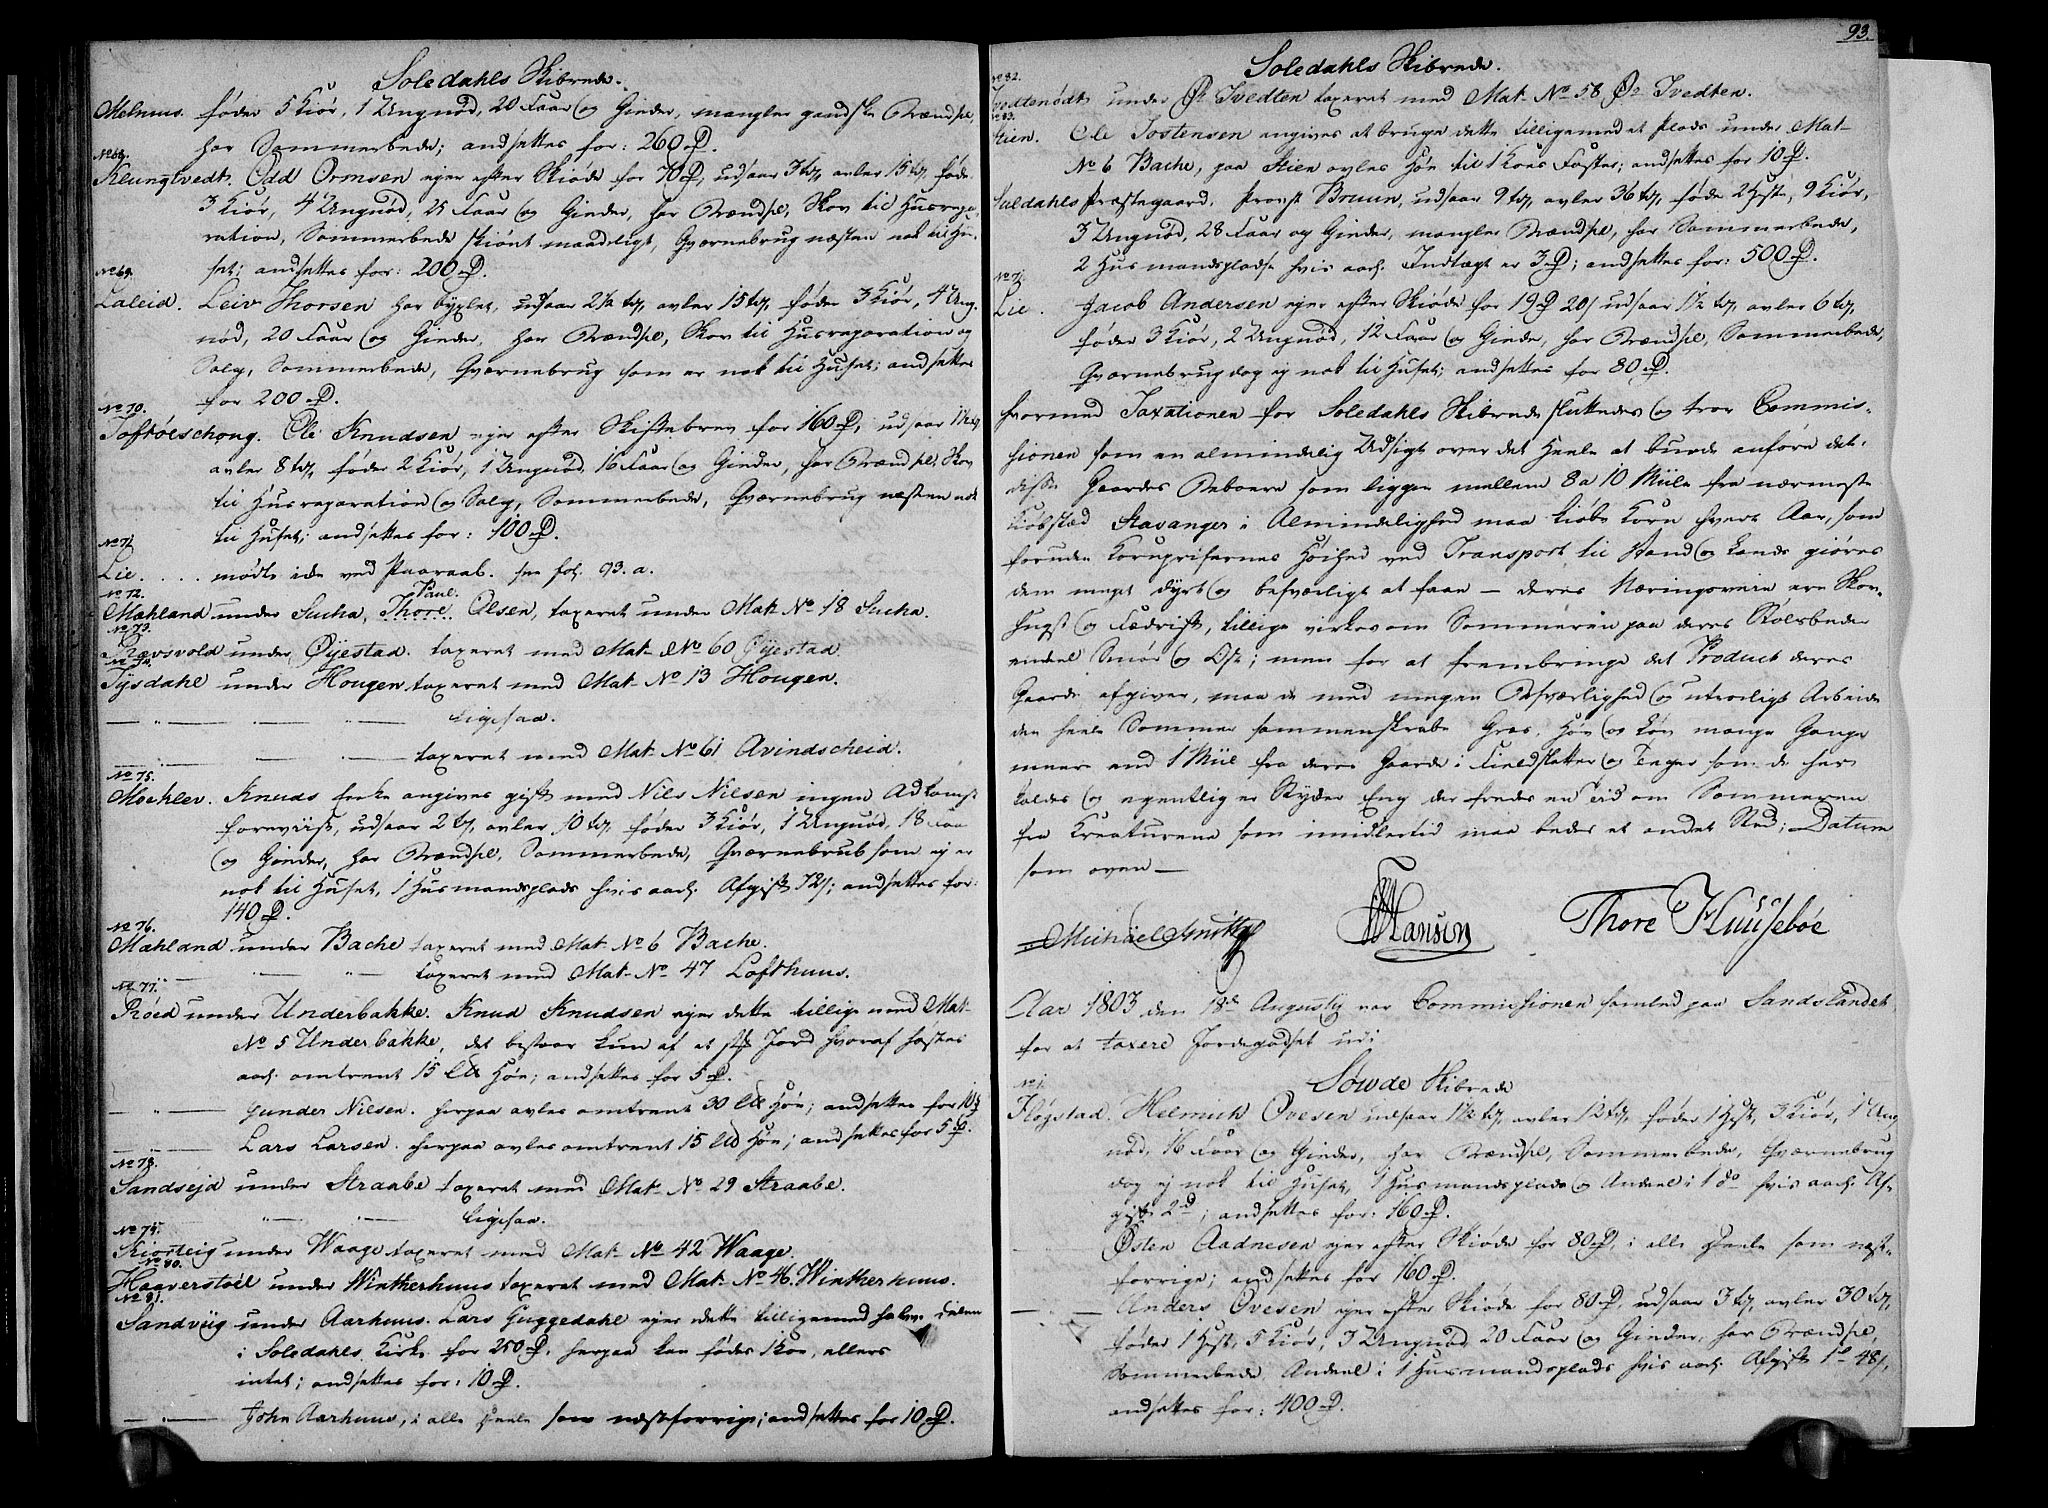 Soledahls Skibrede.
Melhuus. føder 5 Kiør, 1 Ungnød, 20 Faar og Gieder, mangler gandske Brændsel,
har Sommerbede; andsettes for: 260 D.
No 68.
Klungtvedt. Odd Ormsen ejer efter Skiøde for 70 D, udsaar 3 td, avler 15 td, føde
3 Kiør, 4 Ungnød, 25 Faar og Gieder, har Brændsel, Skov til Husrepa-
ration, Sommerbede skiønt maadeligt, Qværnebrug næsten nok til Hu-
set; andsettes for: 200 D.
No 69.
Laleid. Leiv Thorsen har byxlet, udsaar 2½ td, avler 15 td, føder 3 Kiør, 4 Ung-
nød, 20 Faar og Gieder, har Brændsel, Skov til Husreparation og
Salg, Sommerbede, Qværnebrug som er nok til Huset; andsettes
for 200 D.
No 70.
Toftøeschong. Ole Knudsen ejer efter Skiftebrev for 160 D, udsaar
avler 8 td, føder 2 Kiør, 1 Ungnød, 16 Faar og Gieder, har Brændsel, Skov
til Husreparation og Salg, Sommerbede, Qværnebrug næsten nok
til Huset; andsettes for: 100 D.
No 71
Lie. . . . . mødte ide ved Paaraab. see fol. 93. a.
No 72. Paul.
Mæhland under Sucha, Thore Olsen, taxeret under Mat. No 18 Sucha.
No 73.
Røvsvold under Øyestad. taxeret med Mat. No 60 Øyestad
No 74.
Tysdahl under Hougen taxeret med Mat. No 13 Hougen.
— " — — " — Ligesaa.
— " — — taxeret med Mat. No 61 Avindscheid.
No 75.
Moehlev. Knuds Enke angives gift med Nils Nilsen ingen Adkomst
foreviist, udsaar 2 td, avler 10 td, føder 3 Kiør, 1 Ungnød, 18 Faar
og Gieder, har Brændsel, Sommerbede, Qværnebrub som ej er
nok til Huset, 1 Husmandsplads hvis aarl. Afgift 72 s; andsettes for:
140 D.
No 76.
Mæhland under Bache taxeret med Mat. No 6 Bache.
— " — taxeret med Mat. No 47 Lofthuus.
No 77.
Røed under Underbakke. Knud Knudsen ejer dette tillige med Mat.
No 5 Underbakke, det bestaar kun af et stk Jord hvoraf høstes
aarl. omtrent 15 Læs Høe; andsettes for 5 D.
— " — Gunder Nilsen. herpaa avles omtrent 30 Læs Høe; andsettes for 10 D
— " — Lars Larsen. herpaa avles omtrent 15 Læs Høe; andsettes for 5 D.
No 78.
Sandsejd under Straabe taxeret med Mat. No 29 Straabe.
— " — — " — Ligesaa.
No 79.
Kiosteig under Waage taxeret med Mat. No 42 Waage.
No 80.
Haaverstøel under Wintherhuus taxeret med Mat. No 46. Wintherhuus.
No 81.
Sandviig under Aarhuus. Lars Guggedahl ejer dette tilligemed halve Delen
i Soledahls Kirke for 250 D, herpaa kan fødes 1 Koe, ellers
intet; andsettes for: 10 D.
— " — John Aarhuus, i alle Deele som næstforrige; andsettes for 10 D.
93.
Soledahls Skibrede.
No 82.
Tvedtenødt under Øv Tvedten taxeret med Mat. No 58 Øv Tvedten.
No 83.
Stien. Ole Tostensen angives at bruge dette tilligemed et Plads under Mat.
No 6 Bache, paa Stien avles Høe til 1 Koes Foster; andsettes for 10 D.
Suldahls Præstegaard. Provst Bruun, udsaar 9 td, avler 36 td, føde 2 Heste, 9 Kiør,
3 Ungnød, 28 Faar og Gieder, mangler Brændsel, har Sommerbede,
2 Husmandspladse hvis aarl. Indtægt er 3 D; andsettes for: 500 D.
No 71.
Lie. Jacob Andersen ejer efter Skiøde for 19 D 20 s udsaar 1½ td, avler 6 td,
føder 3 Kiør, 2 Ungnød, 12 Faar og Gieder, har Brændsel, Sommerbede,
Qværnebrug dog ej nok til Huset; andsettes for 80 D.
hvormed Taxationen for Soledahls Skibrede sluttedes og troer Commis-
sionen som en almindelig Udsigt over det Heele at burde anføre det:
disse Gaardes Beboere som ligger mellem 8 a 10 Miile fra nærmeste
Kiøbstæd Stavanger i Almindelighed maa kiøbe Korn hvert Aar, som
foruden Kornprisernes Høihed ved Transport til Vand og Lands giøres
dem meget dyrt og besværligt at faae — deres Næringsveie ere Skov-
hugst og Fædrift, tillige virkes om Sommeren paa deres Stølsbeder
endeel Smør og Ost; men for at frembringe det Product deres
Gaarde afgiver, maa de med megen Besværlighed og utroeligt Arbeide
den heele Sommer sammenskrabe Græs, Høe og Løv mange Gange
meer end 1 Miil fra deres Gaarde i Fieldslætter og Tenger som de her
kaldes og egentlig er Stykker Eng der fredes en Tid om Sommeren
fra Kreaturene som imidlertid maa bedes et andet Sted; Datum
som oven —
Michael Smith Hansen Thore Huusebøe
Aar 1803 den 18de Augusty var Commissionen samled paa Sandslandet
for at taxere Jordegodset udi
Søwde Skibrede
No 1.
Fløgstad. Helmich Ovesen udsaar 1½ td, avler 12 td, føder 1 Hest, 3 Kiør, 1 Ung
nød, 16 Faar og Gieder, har Brændsel, Sommerbede, Qværnebrug
dog ej nok til Huset, 1 Husmandsplads og Andeel i 1 do hvis aarl. Af-
gift 2 D; andsettes for: 160 D.
— Østen Aadnesen ejer efter Skiøde for 80 D, i alle Deele som næst-
forrige; andsettes for 160 D.
— " — Anders Ovesen ejer efter Skiøde for 80 D, udsaar 3 td, avler 30 td,
føder 1 Hest, 5 Kiør, 3 Ungnød, 20 Faar og Gieder, har Brændsel,
Sommerbede, Andeel i 1 Husmandsplads hvis aarl. Afgift 1 D 48 s,
andsettes for: 400 D.